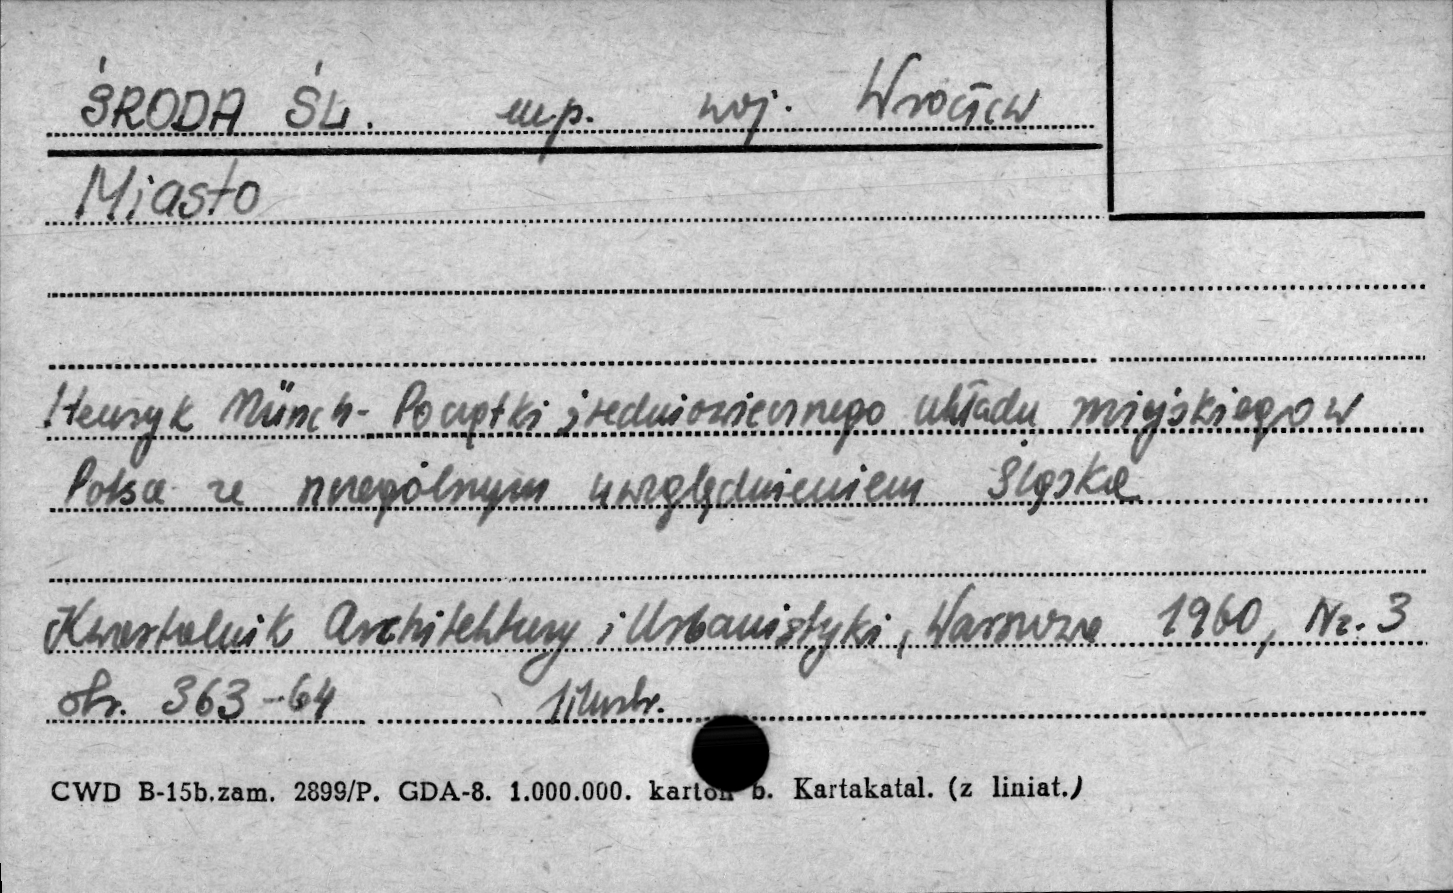 ŚRODA ŚL. mp. woj. Wrocław
Miasto
Henryk Münch - Początki średniowiecznego układu miejskiego w
Polsce ze szczególnym uwzględnieniem Śląska
Kwartalnik Architektury i Urbanistyki, Warszawa 1960, Nr. 3
str. 363-64 1 ilustr.
CWD B-15b.zam. 2899/P. GDA-8. 1.000.000. karton b. Kartakatal. (z liniat.)